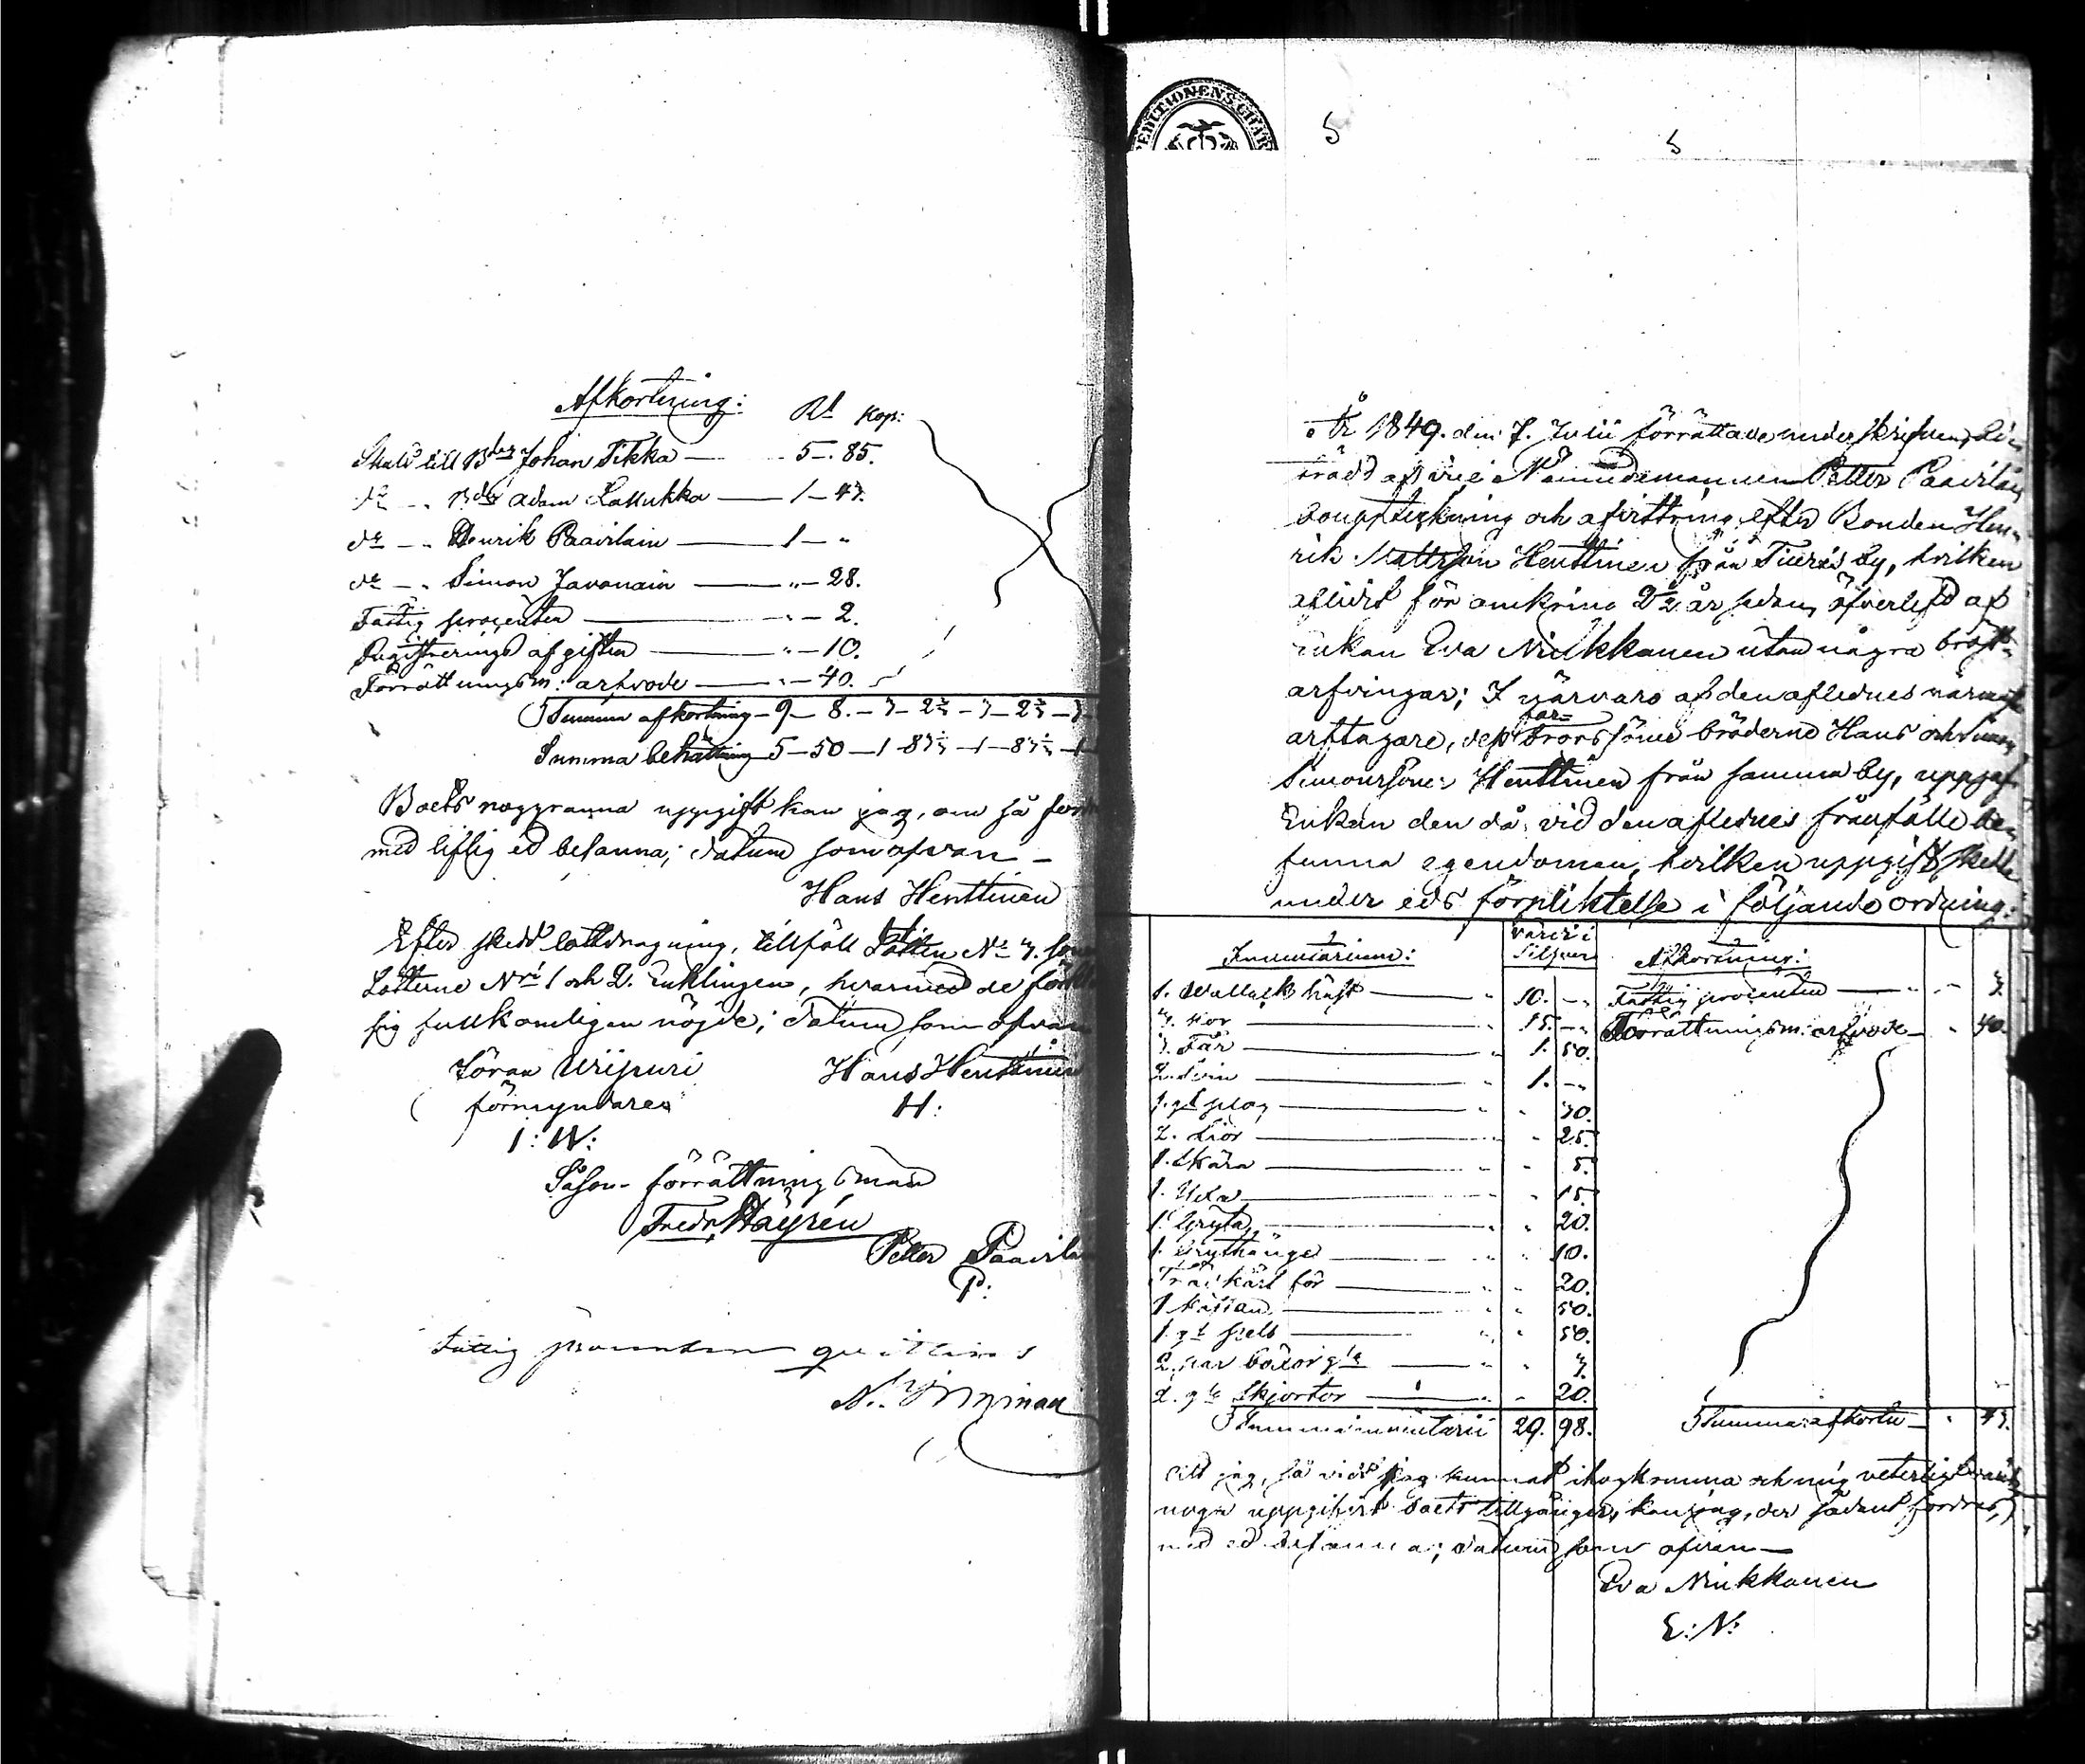 Afkortning:
Rbl Kop:
Skuld till Bden Johan Tikka — 5 - 85.
do - " Bden Adam Lallukka — 1 - 43.
do - " Henrik Paavilain — 1 - "
do - " Simon Javanain — " - 28.
Fattig procenten — " - 2.
Registrerings afgiften — " - 10.
Förrättningsm: arfvode — " - 40.
Summa afkortning - 9 - 8. - 3 - 2 2/3 - 3 - 2 2/3 - 3
Summa behållning 5 - 50 - 1 - 83 1/3 - 1 - 83 1/3 - 1
Boets noggranna uppgift kan jag, om så
med liflig ed besanna; datum som ofvan -
Hans Henttinen
Efter skedd lottdragning, tillföll Lotten No 3.
Lotterne Nri 1 och 2. Enklingen, hvarmed de
sig fullkomligen nöjde; datum som ofvan
Jöran Wiipuri Hans Henttinen
förmyndare H:
I: W:
Såsom förrättningsman
Fredr. Häyrén
Petter Paavilain
P:
Fattig procenten quitteras
5 5
EDITIONENS CHAR
År 1849. den 7. Julii förrättade undertecknad,
biträdd af Nämndemannen Petter Paavilain
bouppteckning och afvittring efter Bonden Hen-
rik Mattsson Henttinen från Tiuris by, hvilken
aflidit för omkring 2 1/2 år sedan, öfverlefd af
Enkan Eva Nuikkanen utan några bröst-
arfvingar; I närvaro af den aflednes närmaste
arftagare, dess far-
brorssöner bröderne Hans och Simon
Simonssöner Henttinen från samma by, uppgaf
Enkan den då vid den aflednes frånfälle be-
funna egendomen, hvilken uppgift skedde
under eds förpliktelse i följande ordning:
Inventarium: Värde i Silfver Afkortning:
1. Wallack häst — " 10. - " Fattig procenten — " - 3.
3. Kor — 15. - " Förrättningsm: arfvode — " 40.
3. Får — " 1. 50.
2. Svin — " 1. - "
1. gl plog — " " 30.
2. Liör — " 25.
1. Skära — " " 5.
1. Yxa — " 15.
1. Gryta — " " 20.
1. Grythänge — " " 10.
Träkäril för — " " 20.
1 Kaftan — " " 50.
1. gl pels — " " 50.
2. par böxor gla — " " 3.
2. gla Skjortor — " " 20.
Summa inventarii 29. 98. Summa afkortn — " 43.
Att jag, så vidt jag kunnat ihogkomma och mig veterligt varit,
noga uppgifvit boets tillgångar, kan jag, der sådant fordras,
med ed besanna; datum som ofvan —
Eva Nuikkanen
E: N: